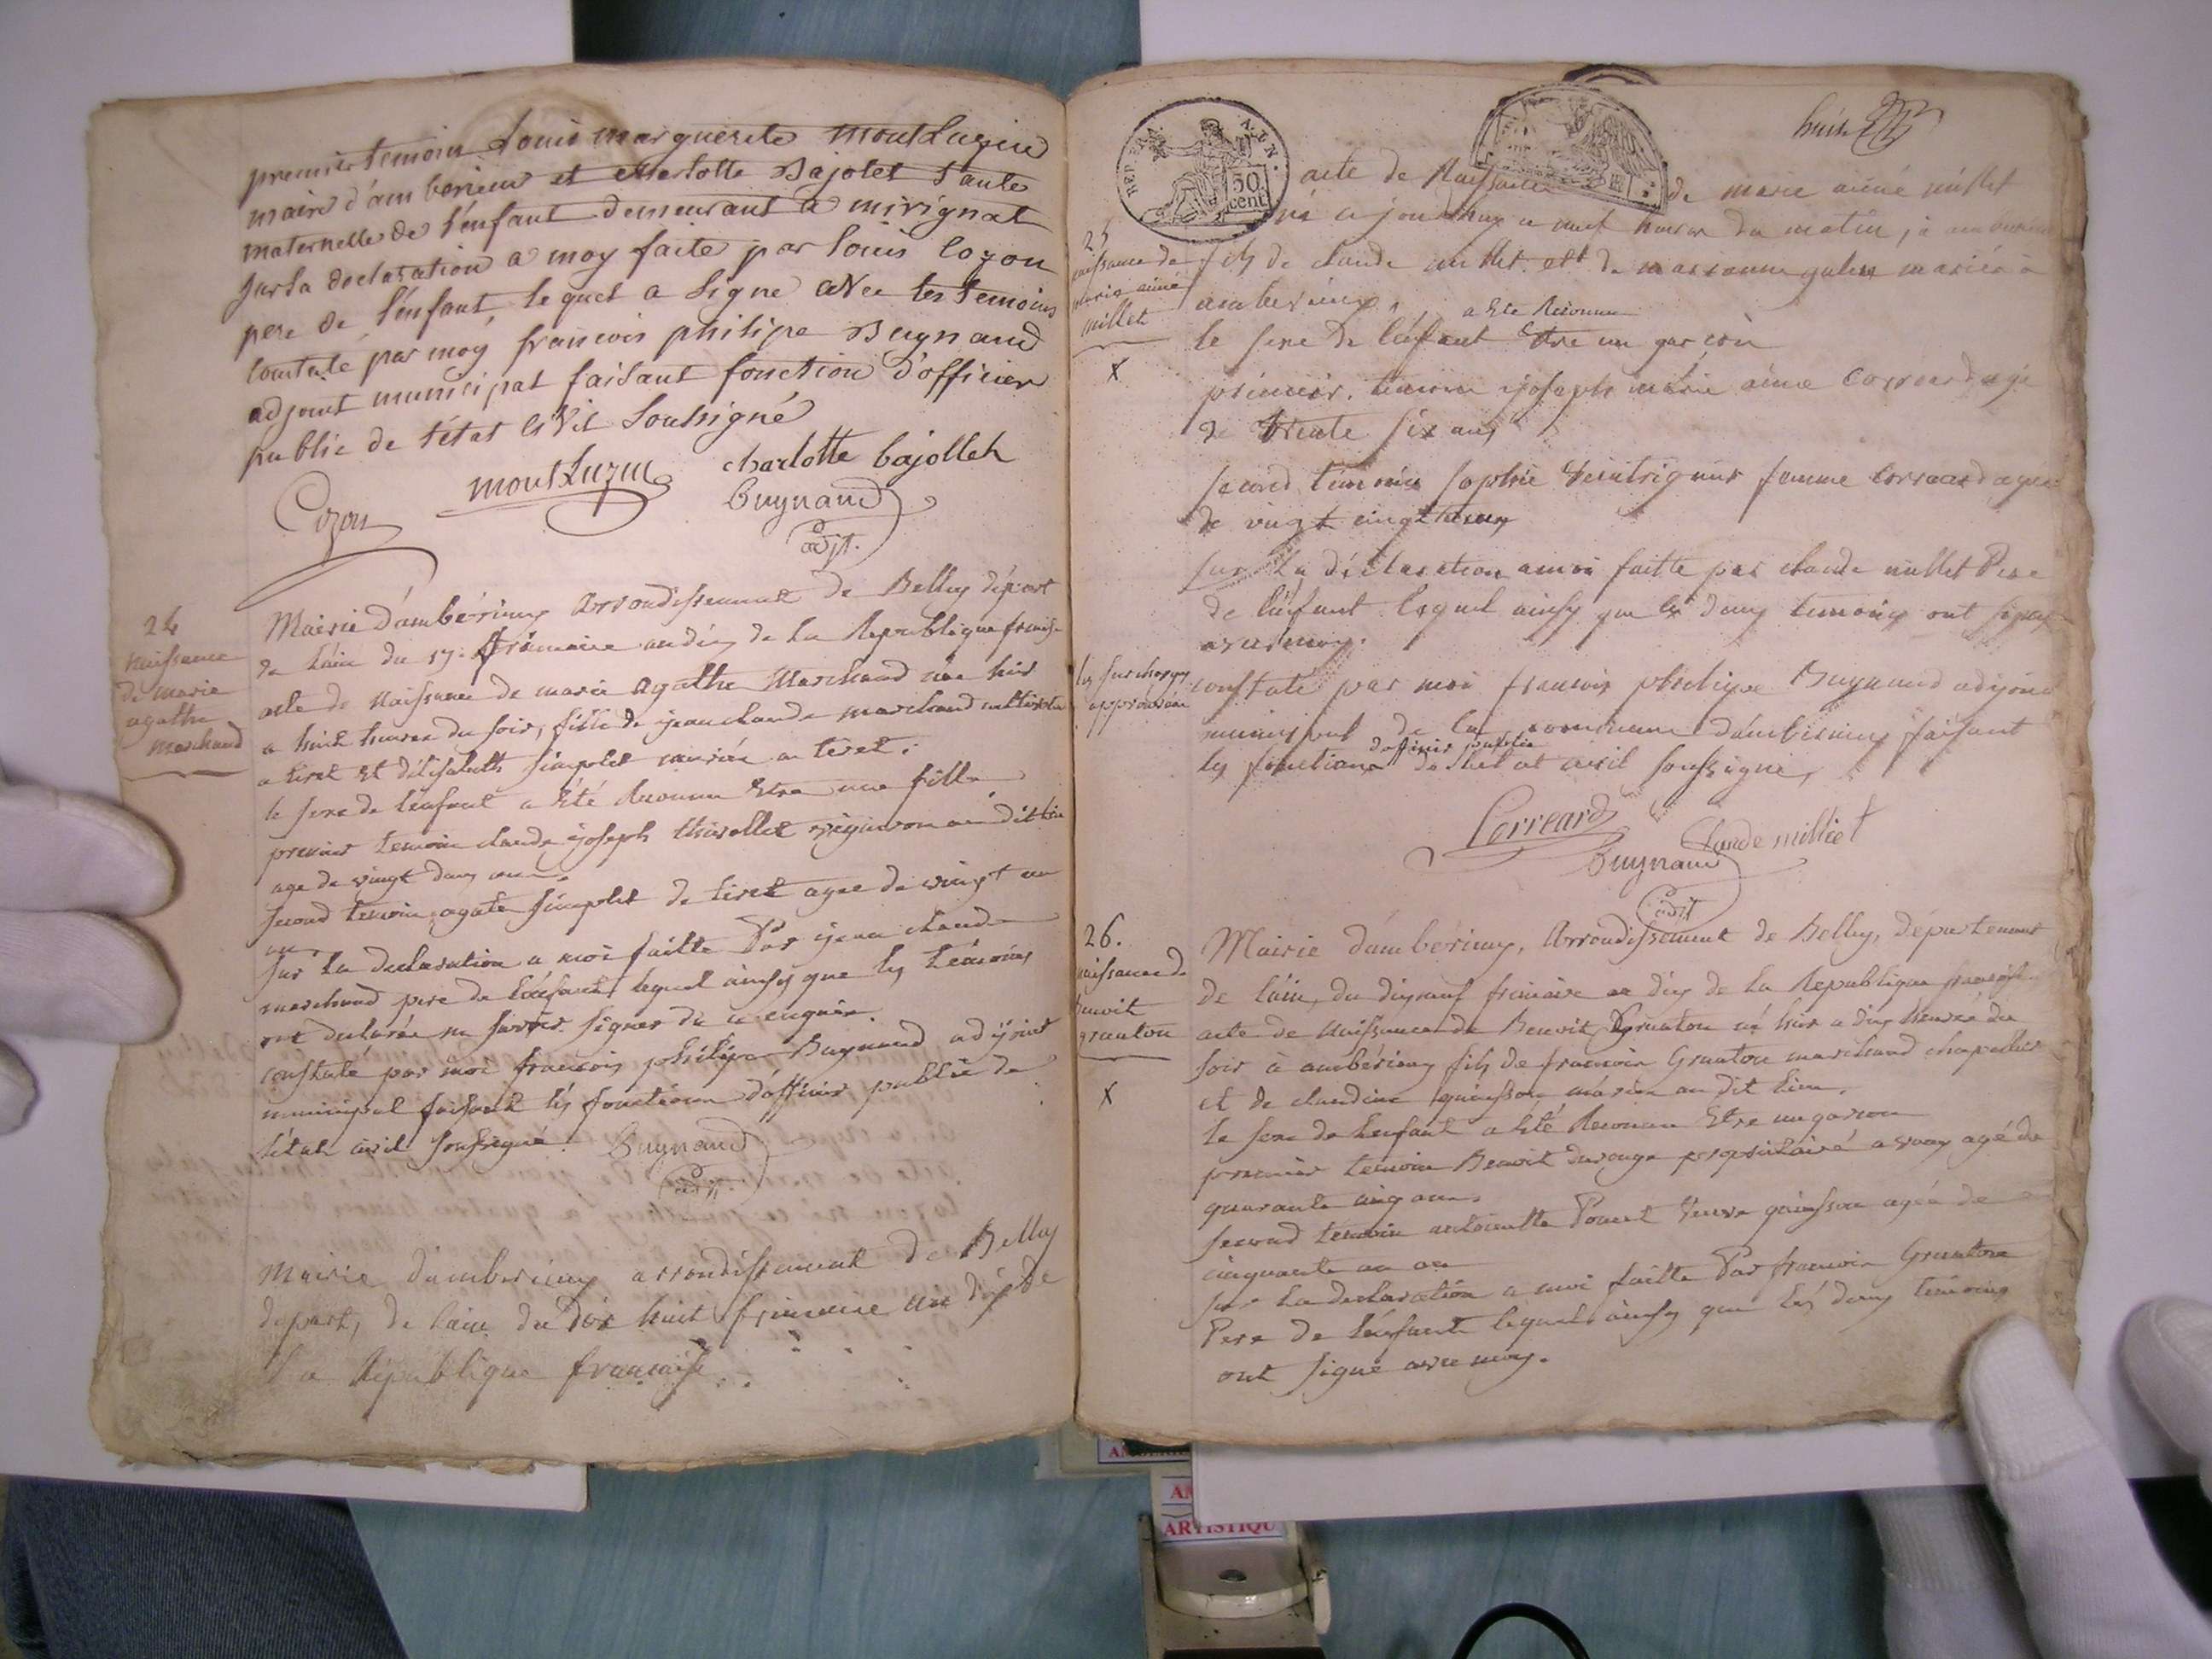 premier temoin Louis marguerite montLuzin
maire d'amberieux et charlotte Bajolet tante
maternelle de l'enfant demeurant a mirignat
sur la declaration a moy faite par louis cozon
pere de l'enfant, lequel a signe avec les temoins
constaté par moy francois philipe Bugnand
adjoint municipal faisant fonction d'officier
public de l'état civil soussigné
Cozon montLuzin charlotte bajolleh
Bugnand
adjt.
24
naissance
de marie
agathe
marchand
Mairie d'ambérieux arrondissement de Belley départ
de l'ain du 17: frimaire an dix de la Republique franse
acte de naissance de marie agathe Marchand née hier
a huit heures du soir, fille de jean claude marchand
a tiret et d'élisabeth simplet mariés au tiret.
le sexe de l'enfant a été reconnu etre une fille
premier temoin claude joseph thivollet vigneron au dit lieu
age de vingt deux ans.
second temoin agate simplet de tiret agee de vingt un
an
sur la declaration a moi faitte Par jean claude
marchand pere de l'enfant lequel ainsy que les témoins
ont declarés ne savoir signer de ce enquis.
constaté par moi francois philipe Bugnand adjoint
municipal faisant les fonctions d'officier public de
l'état civil soussigné. Bugnand
adjt.
Mairie d'amberieux arrondissement de Belley
depart, de l'ain du dix huit frimaire an dix de
La République francaise
huit
REP. FRA.
50
cent.
25
naissance de
marie aimé
millet
x
acte de Naissance de marie aimé millet
né ajourdhuy a neuf heures du matin, à
fils de claude millet et de marianne mariés à
amberieux,
a été Reconnu
le sexe de l'enfant etre un garçon
prémier témoin joseph marie aimé Correard agé
de trente six ans
second témoin sophie femme Correard agée
de vingt cinq ans
sur la déclaration a moi faitte par claude millet Pere
de l'enfant lequel ainsy que les deux temoins ont signé
avec moy.
les surcharges
approuvées
constaté par moi francois philipe Bugnand adjoint
municipal de la commune d'amberieux faisant
d'officier public
les fonctions de l'etat civil soussigné,
Correard
Claude milliet
Bugnand
adjt
26.
naissance de
Benoit
gruaton
x
Mairie d'ambérieux, Arrondissement de Belley, Département
de l'ain, du dixneuf frimaire an dix de la Republique francaise
acte de naissance de Benoit Gruaton né hier a dix heures du
soir à ambérieux fils de francois Gruaton marchand chapellier
et de claudine mariés au dit lieu.
le sexe de l'enfant a été Reconnu Etre un garcon
premier temoin Benoit propriétaire a agé de
quarante cinq ans.
second temoin antoinette Ponet veuve agée de
cinquante un an
sur la declaration a moi faitte Par francois Gruaton
Pere de l'enfant lequel ainsy que les deux témoins
ont signé avec moy.